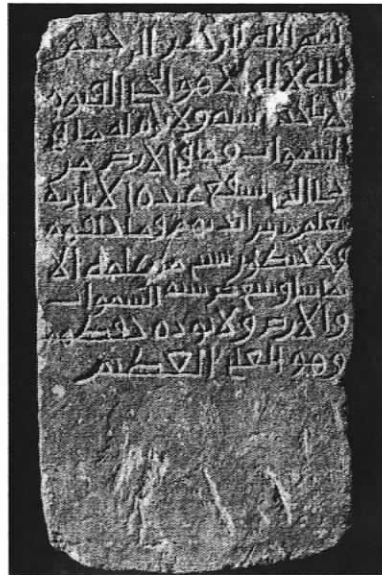 بسم الله الرحمن الرحيم
الله لا اله الا هو الحي القيوم
لا تاخذه سنة ولا نوم له ما في
السموات وما في الارض من
ذا الذي يشفع عنده الا باذنه
يعلم ما بين ايديهم وما خلفهم
ولا يحيطون بشي من علمه الا
بما شا وسع كرسيه السموات
والارض ولا يوده حفظهما
وهو العلي العظيم